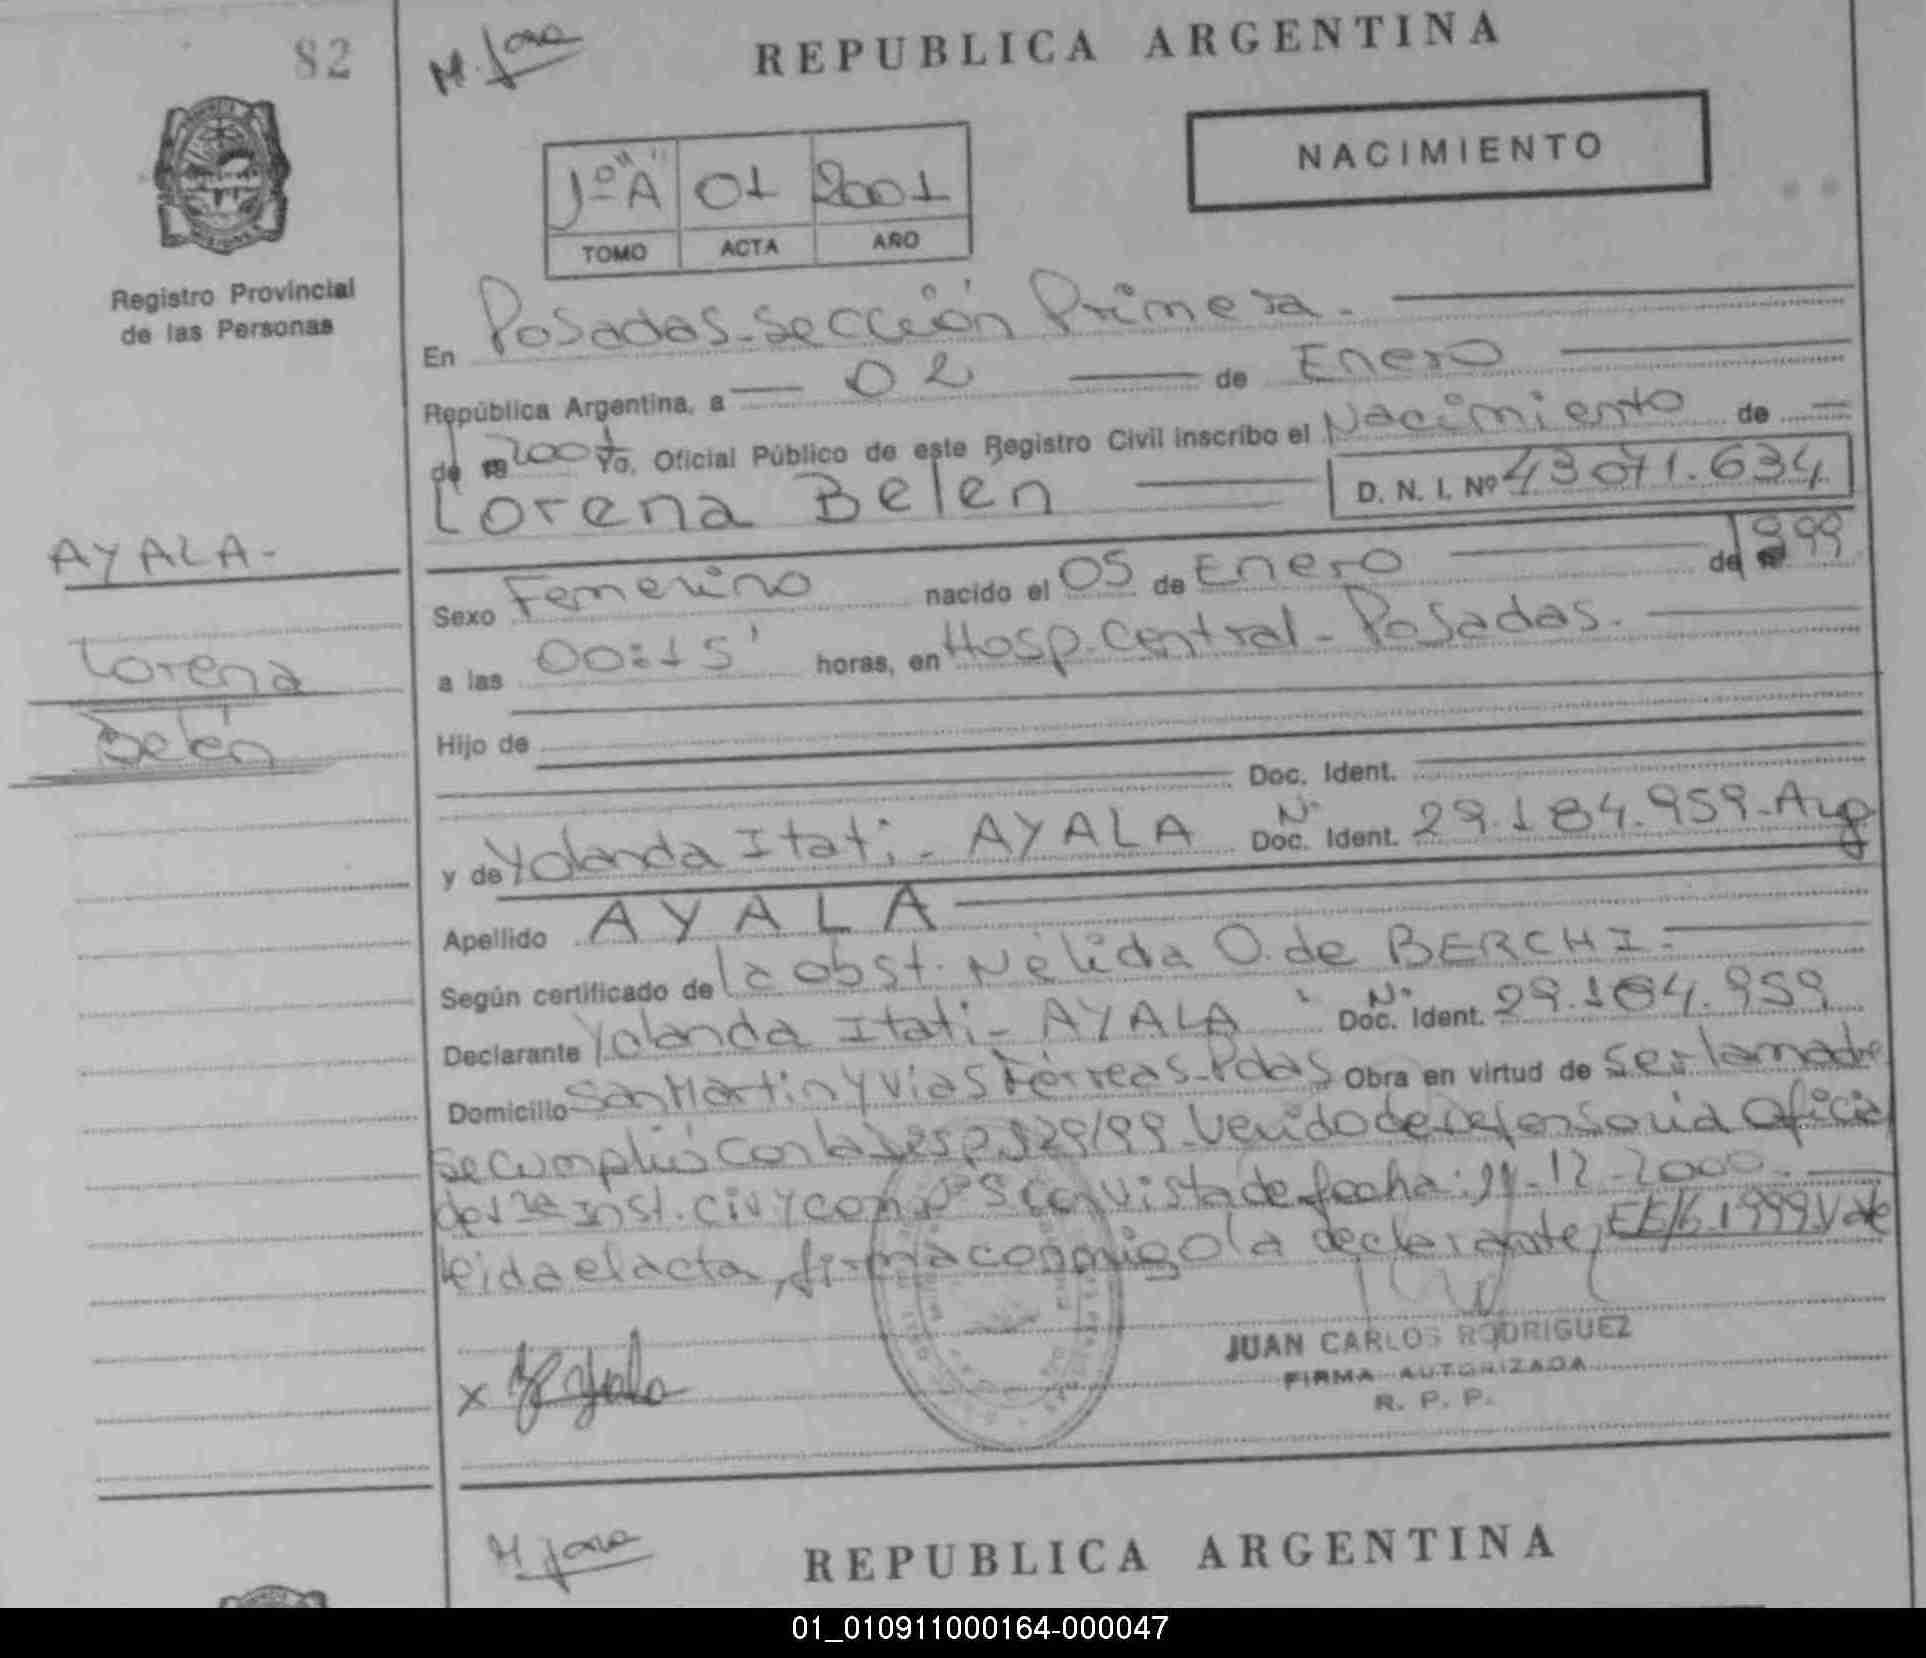 82
M. Jara
REPUBLICA ARGENTINA
NACIMIENTO
1º "A" 01 2001
TOMO ACTA AÑO
Registro Provincial
de las Personas
En Posadas - Sección Primera.
República Argentina, a 02 de Enero
de 2001 Yo, Oficial Público de este Registro Civil inscribo el Nacimiento de
Lorena Belén D. N. I. Nº 43071.634
AYALA-
Lorena
Belén
Sexo Femenino nacido el 05 de Enero de 1999
a las 00:15' horas, en Hosp. Central - Posadas.
Hijo de
Doc. Ident.
y de Yolanda Itati - AYALA Nº Doc. Ident. 29.184.959-Arg
Apellido AYALA
Según certificado de la obst. Nélida O. de BERCHI.
Declarante Yolanda Itati - AYALA Nº Doc. Ident. 29.184.959
Domicilio San Martin y Vias Férreas - Pdas Obra en virtud de ser la madre
se cumplió con la 829/99 - Venido de Defensoria Oficial
de 1ra Inst. Civ y Com. Nº 5 con vista de fecha: -12-2000.
leida el acta, firma conmigo la declarante, 1999. Vale
JUAN CARLOS RODRIGUEZ
FIRMA AUTORIZADA
R. P. P.
x Ayala
M. Jara
REPUBLICA ARGENTINA
01_010911000164-000047